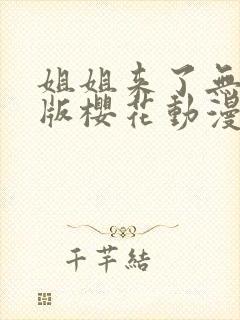 姐姐来了無
版櫻花動漫
千芊結